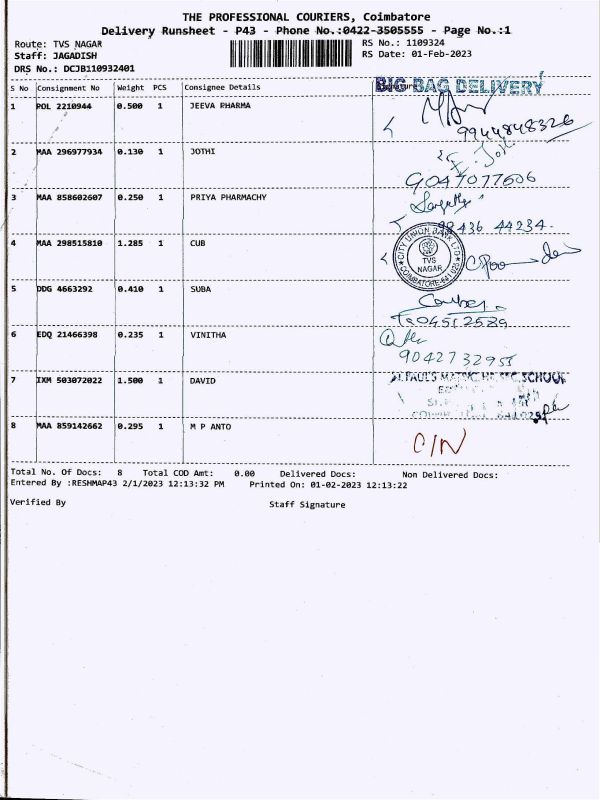 THE PROFESSIONAL COURIERS, Coimbatore
Delivery Runsheet - P43 - Phone No.:0422-3505555 - Page No.:1
Route: TVS NAGAR RS No.: 1109324
Staff: JAGADISH RS Date: 01-Feb-2023
DRS No.: DCJB110932401
S No Consignment No Weight PCS Consignee Details Signature
BIG BAG DELIVERY
1 POL 2210944 0.500 1 JEEVA PHARMA
9944848326
2 MAA 296977934 0.130 1 JOTHI
9047077606
3 MAA 858602607 0.250 1 PRIYA PHARMACHY
98436 44234
4 MAA 298515810 1.285 1 CUB
CITY UNION BANK LTD
TVS
NAGAR
COIMBATORE-641 025
5 DDG 4663292 0.410 1 SUBA
6 EDQ 21466398 0.235 1 VINITHA
9042732955
7 IXM 503072022 1.500 1 DAVID
8 MAA 859142662 0.295 1 M P ANTO
Total No. Of Docs: 8 Total COD Amt: 0.00 Delivered Docs: Non Delivered Docs:
Entered By :RESHMAP43 2/1/2023 12:13:32 PM Printed On: 01-02-2023 12:13:22
Verified By Staff Signature